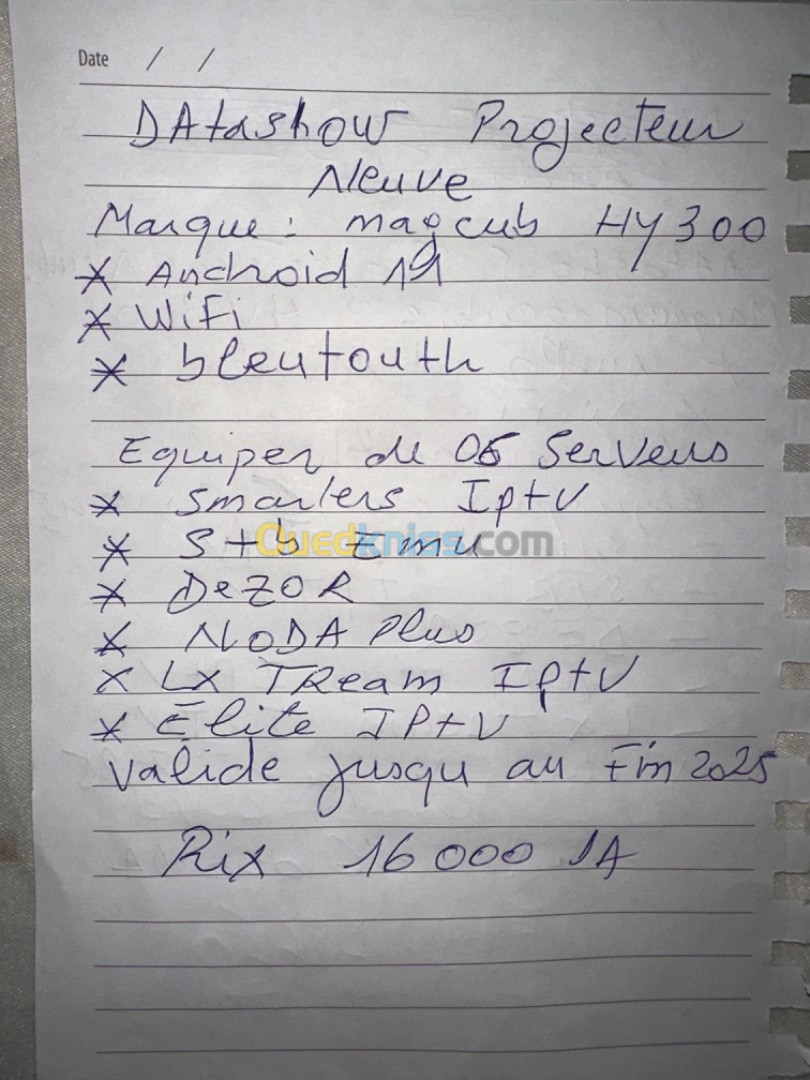 Date / /
DAtashow Projecteur
Neuve
Marque: magcub HY300
* Android 11
* WiFi
* bleutouth
Equiper de 06 Serveurs
* Smarters Iptv
* Stb Emu
* DeZOR
* NODA Plus
* LX TReam Iptv
* Elite IPtv
Valide jusqu au Fin 2025
Prix 16 000 DA
Ouedkniss.com